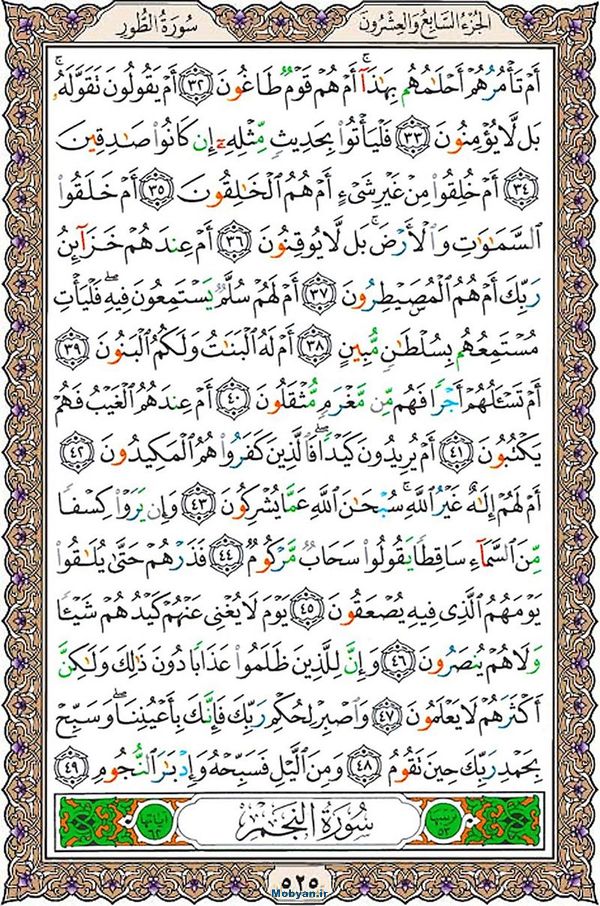 الجُزءُ السَّابِعُ وَالعِشْرُونَ
سُورَةُ الطُّورِ
أَمْ تَأْمُرُهُمْ أَحْلَٰمُهُم بِهَٰذَآ ۚ أَمْ هُمْ قَوْمٌ طَاغُونَ ٣٢ أَمْ يَقُولُونَ تَقَوَّلَهُۥ ۚ
بَل لَّا يُؤْمِنُونَ ٣٣ فَلْيَأْتُوا۟ بِحَدِيثٍ مِّثْلِهِۦٓ إِن كَانُوا۟ صَٰدِقِينَ
٣٤ أَمْ خُلِقُوا۟ مِنْ غَيْرِ شَىْءٍ أَمْ هُمُ الْخَٰلِقُونَ ٣٥ أَمْ خَلَقُوا۟
السَّمَٰوَٰتِ وَالْأَرْضَ ۚ بَل لَّا يُوقِنُونَ ٣٦ أَمْ عِندَهُمْ خَزَآئِنُ
رَبِّكَ أَمْ هُمُ الْمُصَۜيْطِرُونَ ٣٧ أَمْ لَهُمْ سُلَّمٌ يَسْتَمِعُونَ فِيهِ ۖ فَلْيَأْتِ
مُسْتَمِعُهُم بِسُلْطَٰنٍ مُّبِينٍ ٣٨ أَمْ لَهُ الْبَنَٰتُ وَلَكُمُ الْبَنُونَ ٣٩
أَمْ تَسْـَٔلُهُمْ أَجْرًا فَهُم مِّن مَّغْرَمٍ مُّثْقَلُونَ ٤٠ أَمْ عِندَهُمُ الْغَيْبُ فَهُمْ
يَكْتُبُونَ ٤١ أَمْ يُرِيدُونَ كَيْدًا ۖ فَالَّذِينَ كَفَرُوا۟ هُمُ الْمَكِيدُونَ ٤٢
أَمْ لَهُمْ إِلَٰهٌ غَيْرُ اللَّهِ ۚ سُبْحَٰنَ اللَّهِ عَمَّا يُشْرِكُونَ ٤٣ وَإِن يَرَوْا۟ كِسْفًا
مِّنَ السَّمَآءِ سَاقِطًا يَقُولُوا۟ سَحَابٌ مَّرْكُومٌ ٤٤ فَذَرْهُمْ حَتَّىٰ يُلَٰقُوا۟
يَوْمَهُمُ الَّذِى فِيهِ يُصْعَقُونَ ٤٥ يَوْمَ لَا يُغْنِى عَنْهُمْ كَيْدُهُمْ شَيْـًٔا
وَلَا هُمْ يُنصَرُونَ ٤٦ وَإِنَّ لِلَّذِينَ ظَلَمُوا۟ عَذَابًا دُونَ ذَٰلِكَ وَلَٰكِنَّ
أَكْثَرَهُمْ لَا يَعْلَمُونَ ٤٧ وَاصْبِرْ لِحُكْمِ رَبِّكَ فَإِنَّكَ بِأَعْيُنِنَا ۖ وَسَبِّحْ
بِحَمْدِ رَبِّكَ حِينَ تَقُومُ ٤٨ وَمِنَ الَّيْلِ فَسَبِّحْهُ وَإِدْبَٰرَ النُّجُومِ ٤٩
ترتيبها ٥٣
سُورَةُ النَّجْمِ
آياتها ٦٢
٥٢٥
Mobyan.ir